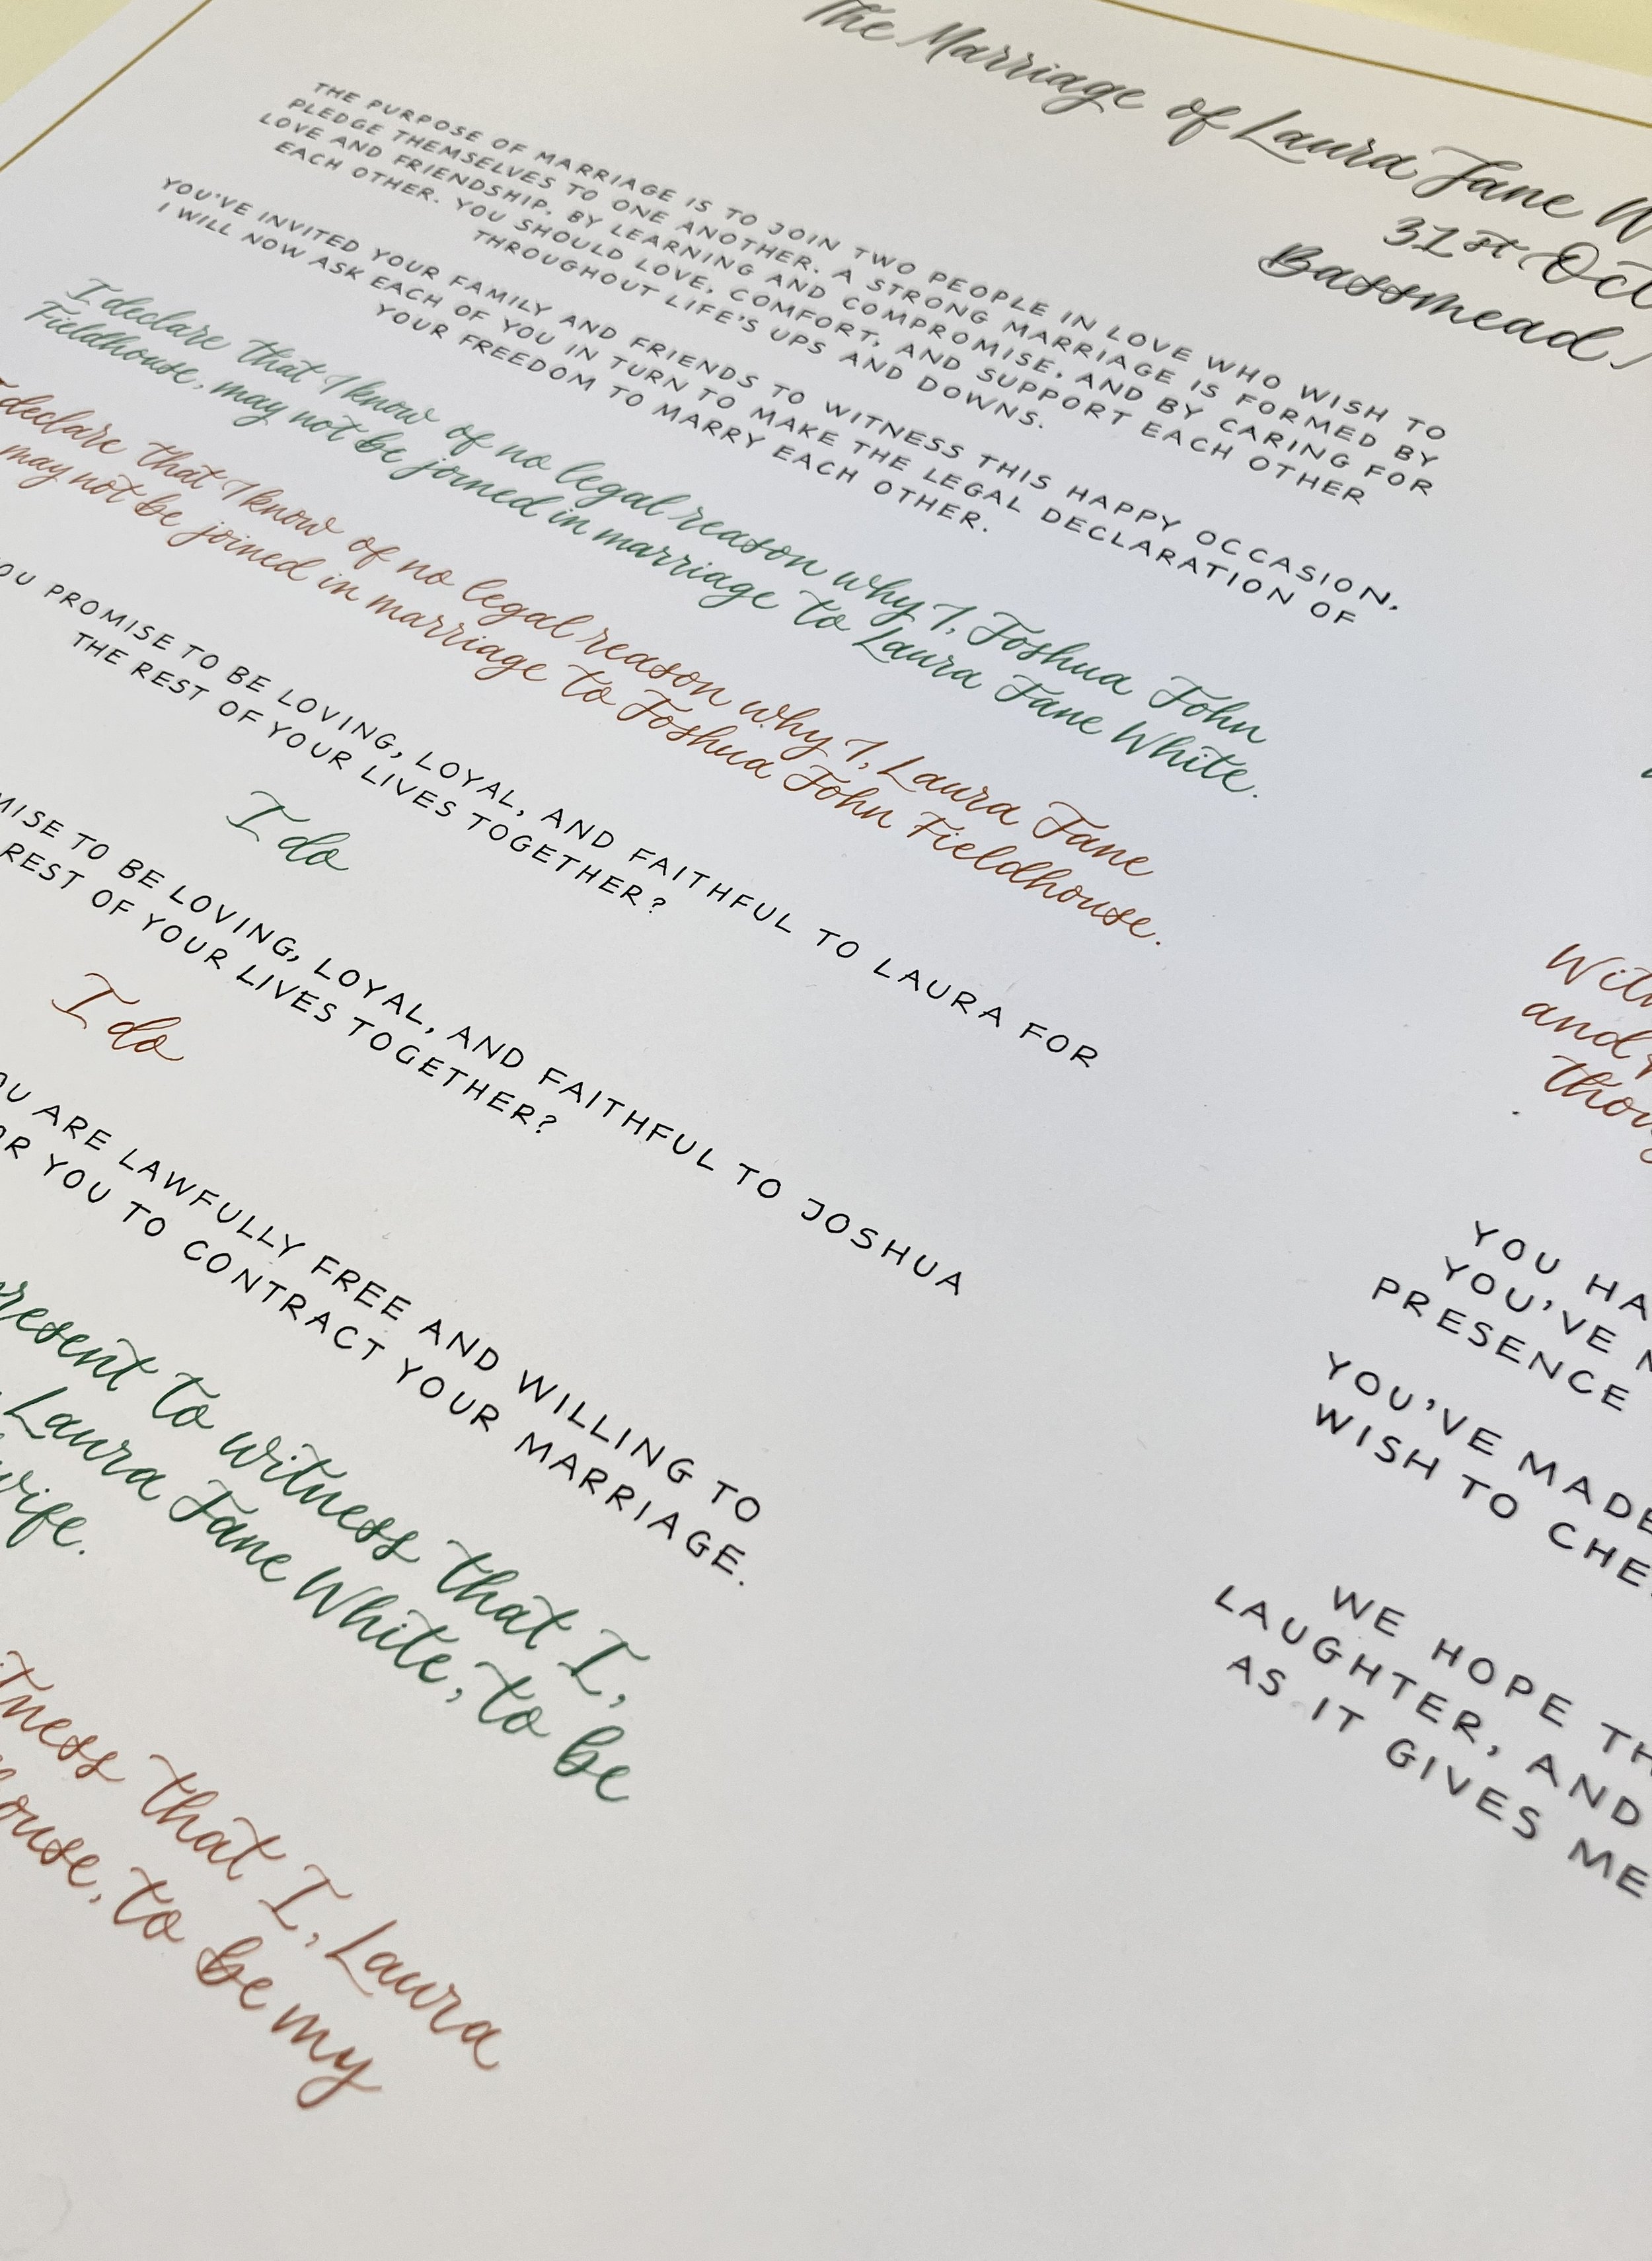 The Marriage of Laura Jane
31st Oct
Bassmead
THE PURPOSE OF MARRIAGE IS TO JOIN TWO PEOPLE IN LOVE WHO WISH TO
PLEDGE THEMSELVES TO ONE ANOTHER. A STRONG MARRIAGE IS FORMED BY
LOVE AND FRIENDSHIP, BY LEARNING AND COMPROMISE, AND BY CARING FOR
EACH OTHER. YOU SHOULD LOVE, COMFORT, AND SUPPORT EACH OTHER
THROUGHOUT LIFE'S UPS AND DOWNS.
YOU'VE INVITED YOUR FAMILY AND FRIENDS TO WITNESS THIS HAPPY OCCASION,
I WILL NOW ASK EACH OF YOU IN TURN TO MAKE THE LEGAL DECLARATION OF
YOUR FREEDOM TO MARRY EACH OTHER.
I declare that I know of no legal reason why I, Joshua John
Fieldhouse, may not be joined in marriage to Laura Jane White.
declare that I know of no legal reason why I, Laura Jane
may not be joined in marriage to Joshua John Fieldhouse.
OU PROMISE TO BE LOVING, LOYAL, AND FAITHFUL TO LAURA FOR
THE REST OF YOUR LIVES TOGETHER?
I do
MISE TO BE LOVING, LOYAL, AND FAITHFUL TO JOSHUA
REST OF YOUR LIVES TOGETHER?
I do
OU ARE LAWFULLY FREE AND WILLING TO
OR YOU TO CONTRACT YOUR MARRIAGE.
present to witness that I,
Laura Jane White, to be
wife.
tness that I, Laura
ouse, to be my
With
and
thou
YOU HA
YOU'VE M
PRESENCE
YOU'VE MADE
WISH TO CHE
WE HOPE TH
LAUGHTER, AND
AS IT GIVES ME